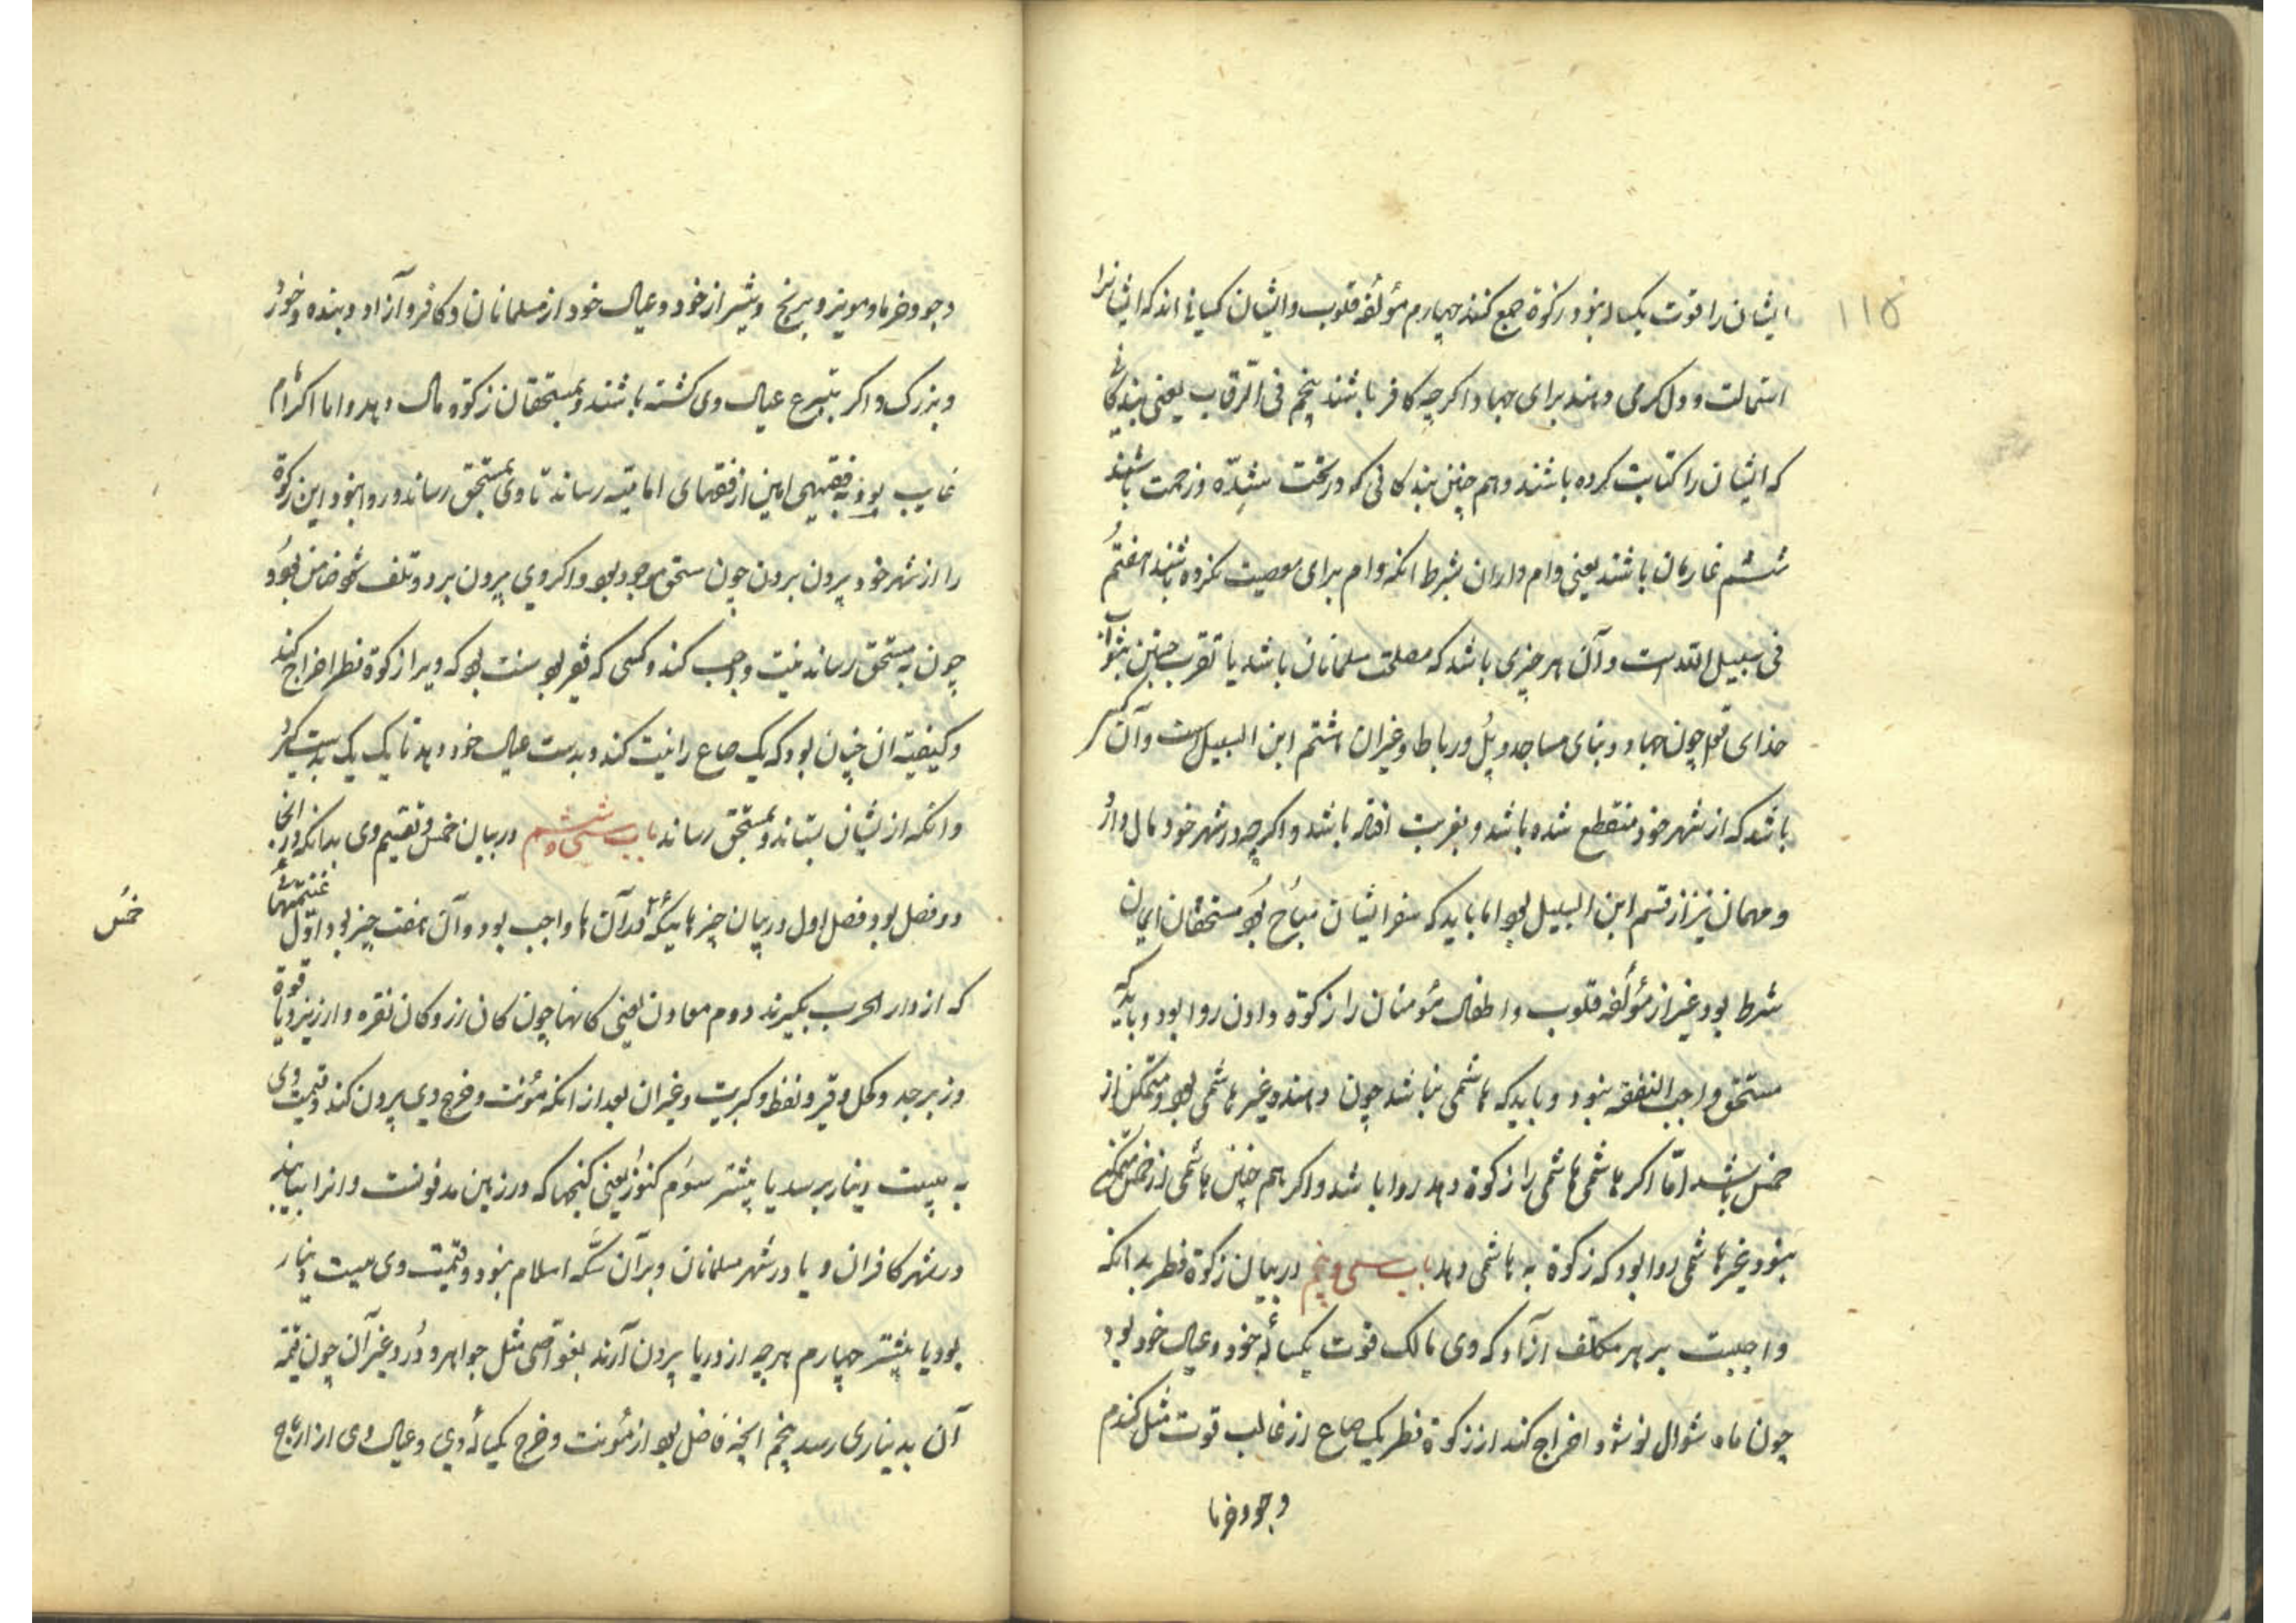 ۱۱۵
ایشان را قوت یکساله نبود و زکوة جمع کنند چهارم مؤلفه قلوب و ایشان کسانی اند که ایشانرا
استمالت و دل کرمی دهند برای جهاد اکرچه کافر باشند پنجم فی الرّقاب یعنی بندکانی
که ایشان را کتابت کرده باشند و هم چنین بندکانی که در تحت شدّه و زحمت باشند
ششم غارمان باشند یعنی وام داران بشرط انکه وام برای معصیت نکرده باشند هفتم
فی سبیل الله است و آن هر چیزی باشد که مصلحت مسلمانان باشد یا تقرب جستن بثواب
خدای تعالی چون جهاد و بنای مساجد و پُل و رباط و غیران هشتم ابن السبیل است و آن کسی
باشد که از شهر خود منقطع شده باشد و بغربت افتاده باشد و اکرچه در شهر خود مال دارد
و مهمان نیز از قسم ابن السبیل بود اما باید که سفر ایشان مباح بود مستحقان ایمان
شرط بود غیر از مؤلفه قلوب و اطفال مؤمنان را زکوة دادن روا بود و باید که
مستحق واجب النفقه نبود و باید که هاشمی نباشد چون دهنده غیر هاشمی بود و متمکن از
خمس باشد امّا اکر هاشمی هاشمی را زکوة دهد روا باشد و اکر هم چنین هاشمی از خمس متمکن
نبود غیر هاشمی روا بود که زکوة به هاشمی دهد باب سی و پنجم در بیان زکوة فطر بدانکه
واجبست بر هر مکلف ازاد که وی مالک قوت یکساله خود و عیال خود بود
چون ماه شوال نو شود اخراج کند از زکوة فطر یک صاع از غالب قوت مثل کندم
و جو و خرما
و جو و خرما و مویز و برنج و شیر از خود و عیال خود از مسلمانان و کافر و آزاد و بنده و خورد
و بزرک و اکر بتبرع عیال وی کشته باشند و بمستحقان زکوة مال دهد و اما اکر امام
غایب بود به فقیهی امین از فقهای امامیّه رساند تا وی بمستحق رساند و روا نبود این زکوة
را از شهر خود بیرون بردن چون مستحق موجود بود و اکر وی بیرون برد و تلف شود ضامن بود و
چون به مستحق رساند نیت واجب کند و کسی که فقیر بود سنت بود که ویرا زکوة فطر اخراج کند
و کیفیة ان چنان بود که یک صاع را نیت کند و بدست عیال خود دهد تا یک یک بدست کیرد
و انکه از ایشان بستاند و بمستحق رساند باب سی و ششم در بیان خمس و تقسیم وی بدانکه در اینجا
دو فصل بود فصل اول در بیان چیزهاییکه در آن ها واجب بود و آن هفت چیز بود اوّل غنیمتهایی
که از دار الحرب بکیرند دوم معادن یعنی کانها چون کان زر و کان نقره و ارزیز و یاقوة
و زبرجد و کحل و قیر و نفط و کبریت و غیران بعد از انکه مؤنت و خرج وی بیرون کند و قیمت وی
به بیست دینار برسد یا بیشتر سوّم کنوز یعنی کنجها که در زمین مدفونست و انرا بیابند
در شهر کافران و یا در شهر مسلمانان و بر آن سکّه اسلام نبود و قیمت وی بیست دینار
بود یا بیشتر چهارم هرچه از دریا بیرون آرند بغوّاصی مثل جواهر و دُر و غیر آن چون قیمة
آن به دیناری رسد پنجم انچه فاضل بود از مؤنت و خرج یکساله وی و عیال وی از ارباح
خمس